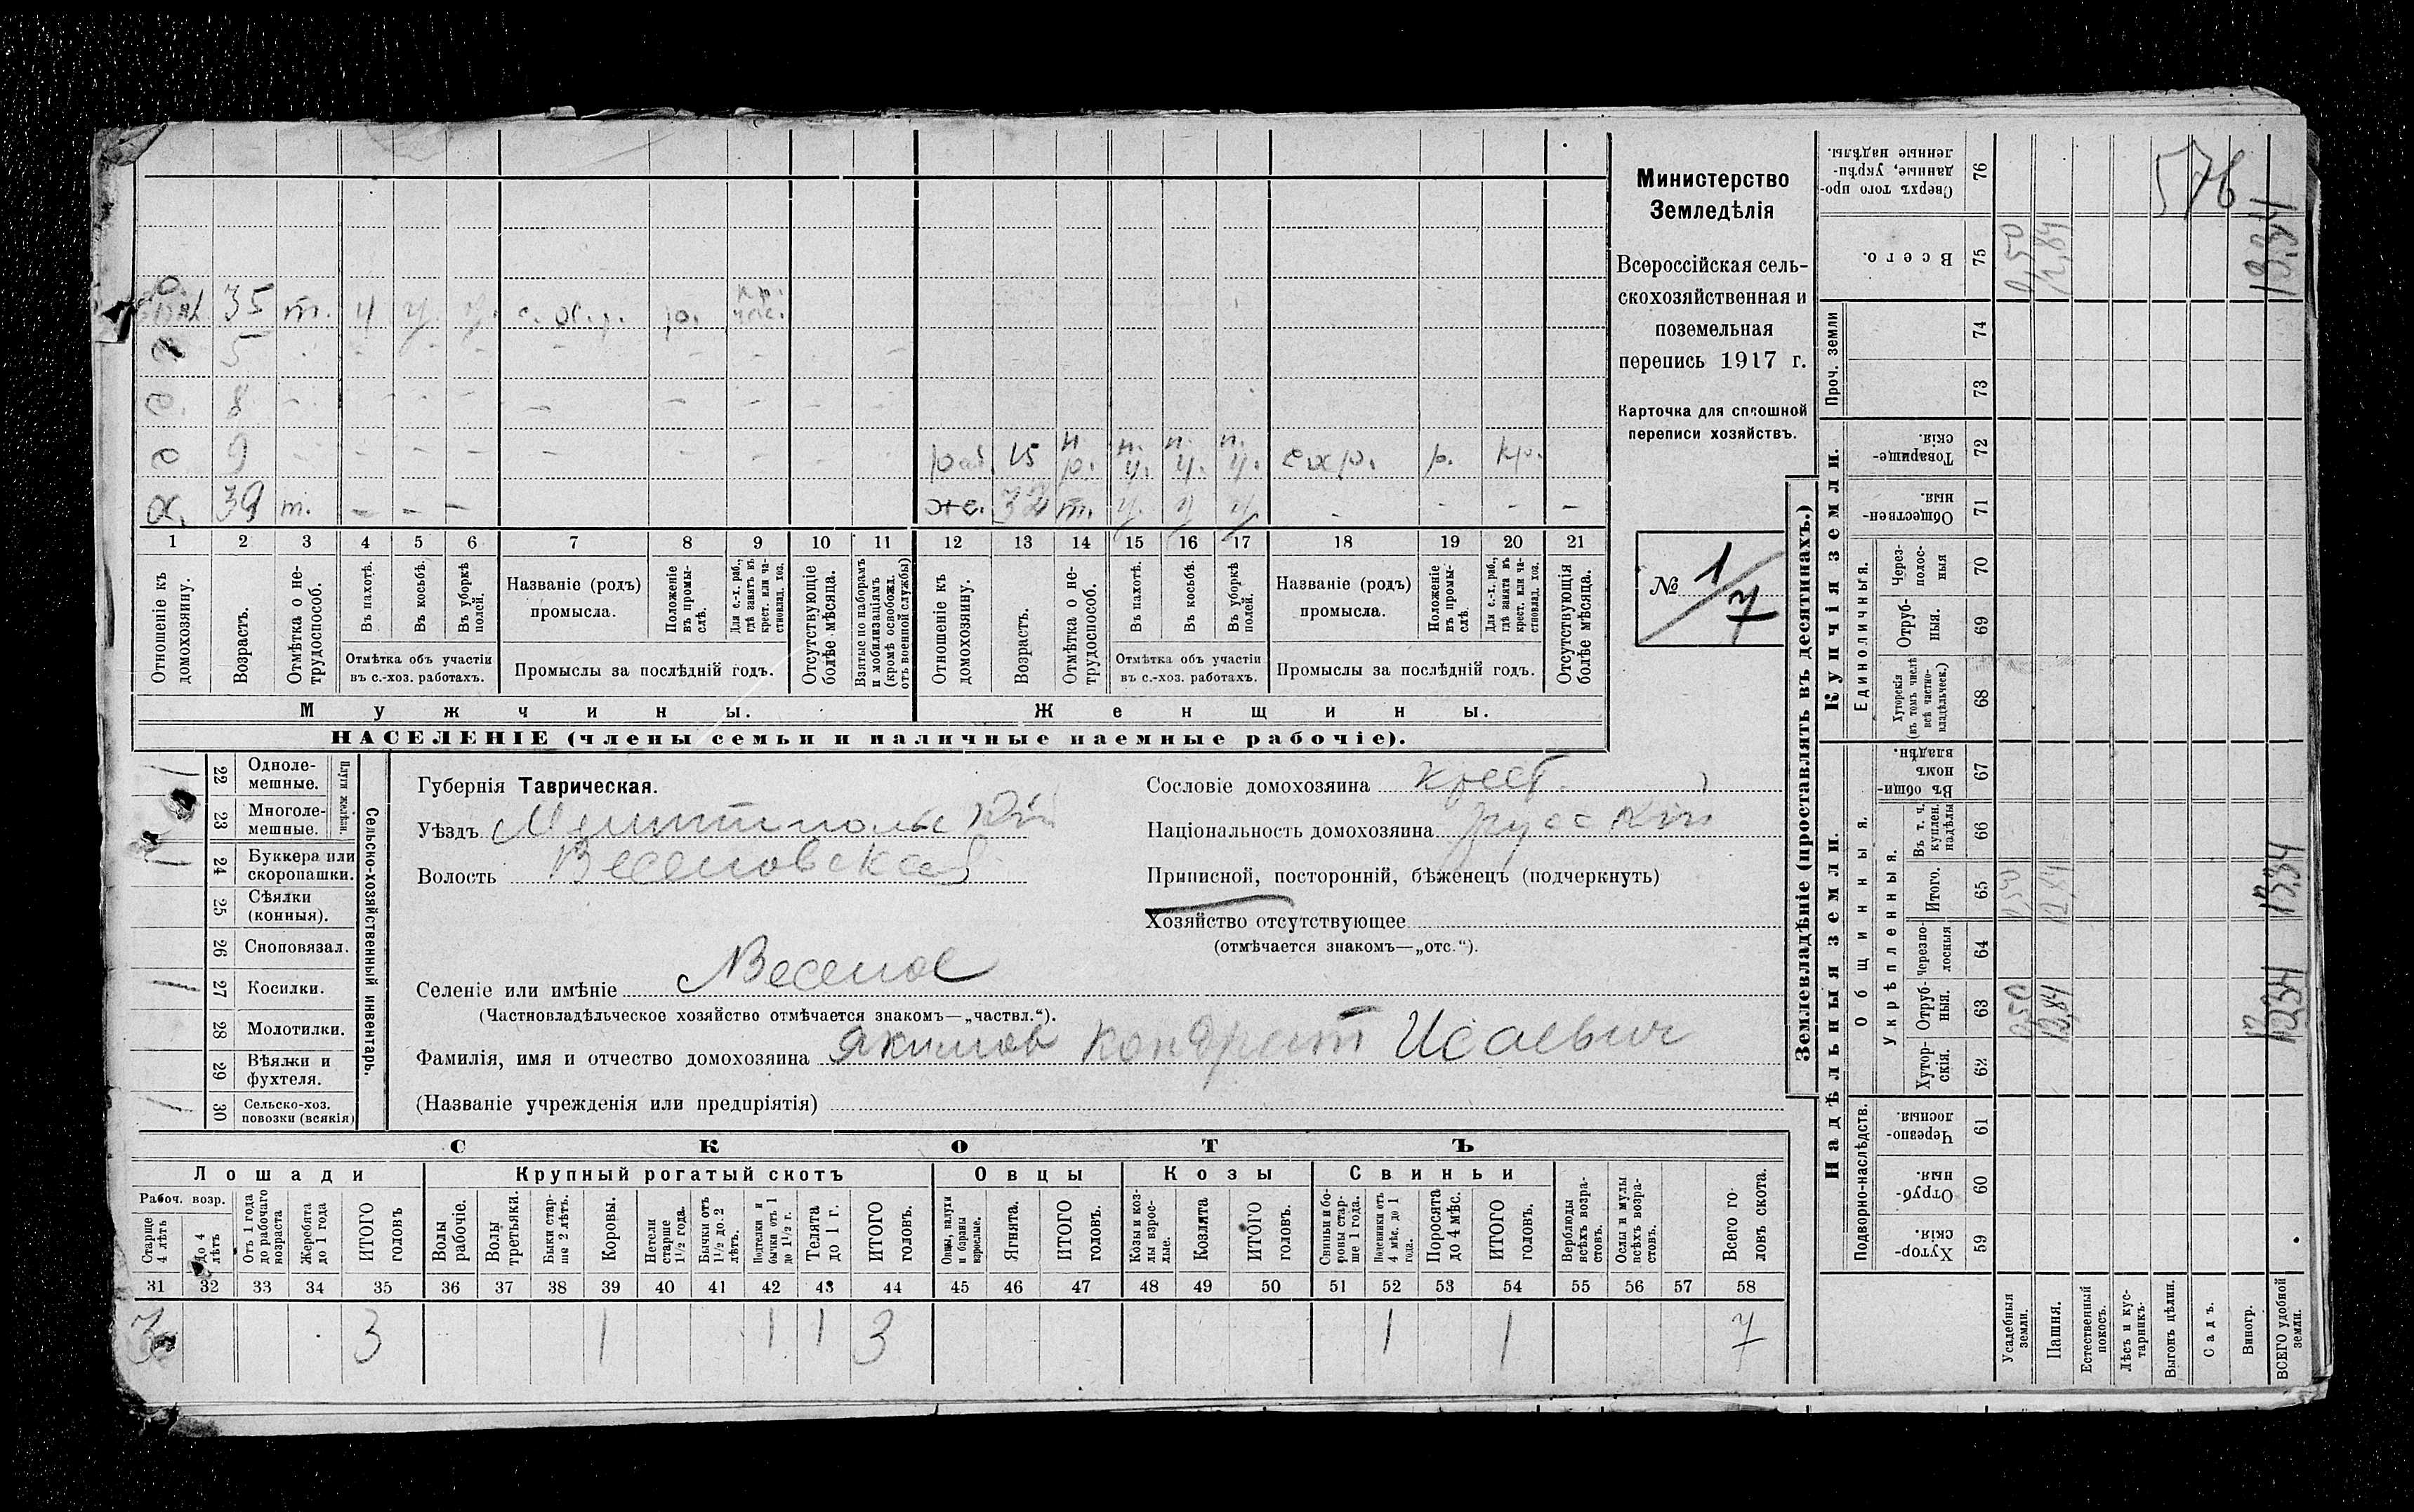 576
р. 35 т. у у. у. с.х.р. р. кр. час.
с 5 - - - - - -
с. 8 - - - - - - - -
с 9 - - - - - - - -
раб. 15 п р. п. у. п. у. п. у. с х р. р. кр.
х. 39 т. - - -
же. 32 т. у. у у - - - -
1 2 3 4 5 6 7 8 9 10 11 12 13 14 15 16 17 18 19 20 21
Отношеніе къ домохозяину.
Возрастъ.
Отмѣтка о нетрудоспособ.
Въ пахотѣ.
Въ косьбѣ.
Въ уборкѣ полей.
Отмѣтка объ участіи въ с.-хоз. работахъ.
Названіе (родъ) промысла.
Положеніе въ промыслѣ.
Для с.-х. раб., гдѣ занятъ въ крест. или частновлад. хоз.
Промыслы за послѣдній годъ.
Отсутствующіе болѣе мѣсяца.
Взятые по наборамъ и мобилизаціямъ (кромѣ освобожд. отъ военной службы)
Отношеніе къ домохозяину.
Возрастъ.
Отмѣтка о нетрудоспособ.
Въ пахотѣ.
Въ косьбѣ.
Въ уборкѣ полей.
Отмѣтка объ участіи въ с.-хоз. работахъ.
Названіе (родъ) промысла.
Положеніе въ промыслѣ.
Для с.-х. раб., гдѣ занята въ крест. или частновлад. хоз.
Промыслы за послѣдній годъ.
Отсутствующія болѣе мѣсяца.
Мужчины.
Женщины.
НАСЕЛЕНІЕ (члены семьи и наличные наемные рабочіе).
Министерство
Земледѣлія
Всероссійская сель-
скохозяйственная и
поземельная
перепись 1917 г.
Карточка для сплошной
переписи хозяйствъ.
№ 1/7
Сельско-хозяйственный инвентарь.
Плуги желѣзн.
22 Одноле-мешные.
23 Многоле-мешные.
24 Буккера или скоропашки.
25 Сѣялки (конныя).
26 Сноповязал.
27 Косилки.
28 Молотилки.
29 Вѣялки и фухтеля.
30 Сельско-хоз. повозки (всякія)
Губернія Таврическая.
Уѣздъ Мелитопольскій
Волость Веселовская
Селеніе или имѣніе Веселое
(Частновладѣльческое хозяйство отмѣчается знакомъ—„частвл.“).
Фамилія, имя и отчество домохозяина Якимов Кондрат Исаевич
(Названіе учрежденія или предпріятія)
Сословіе домохозяина крест.
Національность домохозяина русскій
Приписной, посторонній, бѣженецъ (подчеркнуть)
Хозяйство отсутствующее
(отмѣчается знакомъ—„отс.“).
СКОТЪ
Лошади Крупный рогатый скотъ Овцы Козы Свиньи
Рабоч. возр.
Старше 4 лѣтъ
До 4 лѣтъ
Отъ 1 года до рабочаго возраста
Жеребята до 1 года
ИТОГО головъ
Волы рабочіе.
Волы третьяки.
Быки старше 2 лѣтъ.
Коровы.
Нетели старше 1 1/2 года.
Бычки отъ 1 1/2 до 2 лѣтъ.
Подтелки и бычки отъ 1 до 1 1/2 г.
Телята до 1 г.
ИТОГО головъ.
Овцы, валухи и бараны взрослые.
Ягнята.
ИТОГО головъ.
Козы и козлы взрослые.
Козлята
ИТОГО головъ.
Свиньи и боровы старше 1 года.
Подсвинки отъ 4 мѣс. до 1 года.
Поросята до 4 мѣс.
ИТОГО головъ.
Верблюды всѣхъ возрастовъ.
Ослы и мулы всѣхъ возрастовъ.
Всего головъ скота.
31 32 33 34 35 36 37 38 39 40 41 42 43 44 45 46 47 48 49 50 51 52 53 54 55 56 57 58
3 3 1 1 1 3 1 1 7
Землевладѣніе (проставлять въ десятинахъ.)
Надѣльныя земли.
Купчія земли.
Проч. земли
Подворно-наслѣдств.
Общинныя.
Укрѣпленныя.
Единоличныя.
59 Хутор-скія.
60 Отруб-ныя.
61 Черезпо-лосныя.
62 Хутор-скія.
63 Отруб-ныя.
64 Черезпо-лосныя
65 Итого.
66 Въ т. ч. куплен. надѣлы
67 Въ общи-номъ владѣн.
68 Хуторскія (въ томъ числѣ всѣ частно-владѣльческ.)
69 Отруб-ныя.
70 Через-полос-ныя
71 Обществен-ныя.
72 Товарище-скія.
73
74
75 Всего.
76 Сверхъ того про-данные, укрѣп-ленные надѣлы.
Усадебныя земли. 0,50 0,50 0,50
Пашня. 12,84 12,84 12,84
Естественный покосъ.
Лѣсъ и кус-тарникъ.
Выгонъ цѣлин.
Садъ.
Виногр.
ВСЕГО удобной земли. 13,34 13,34